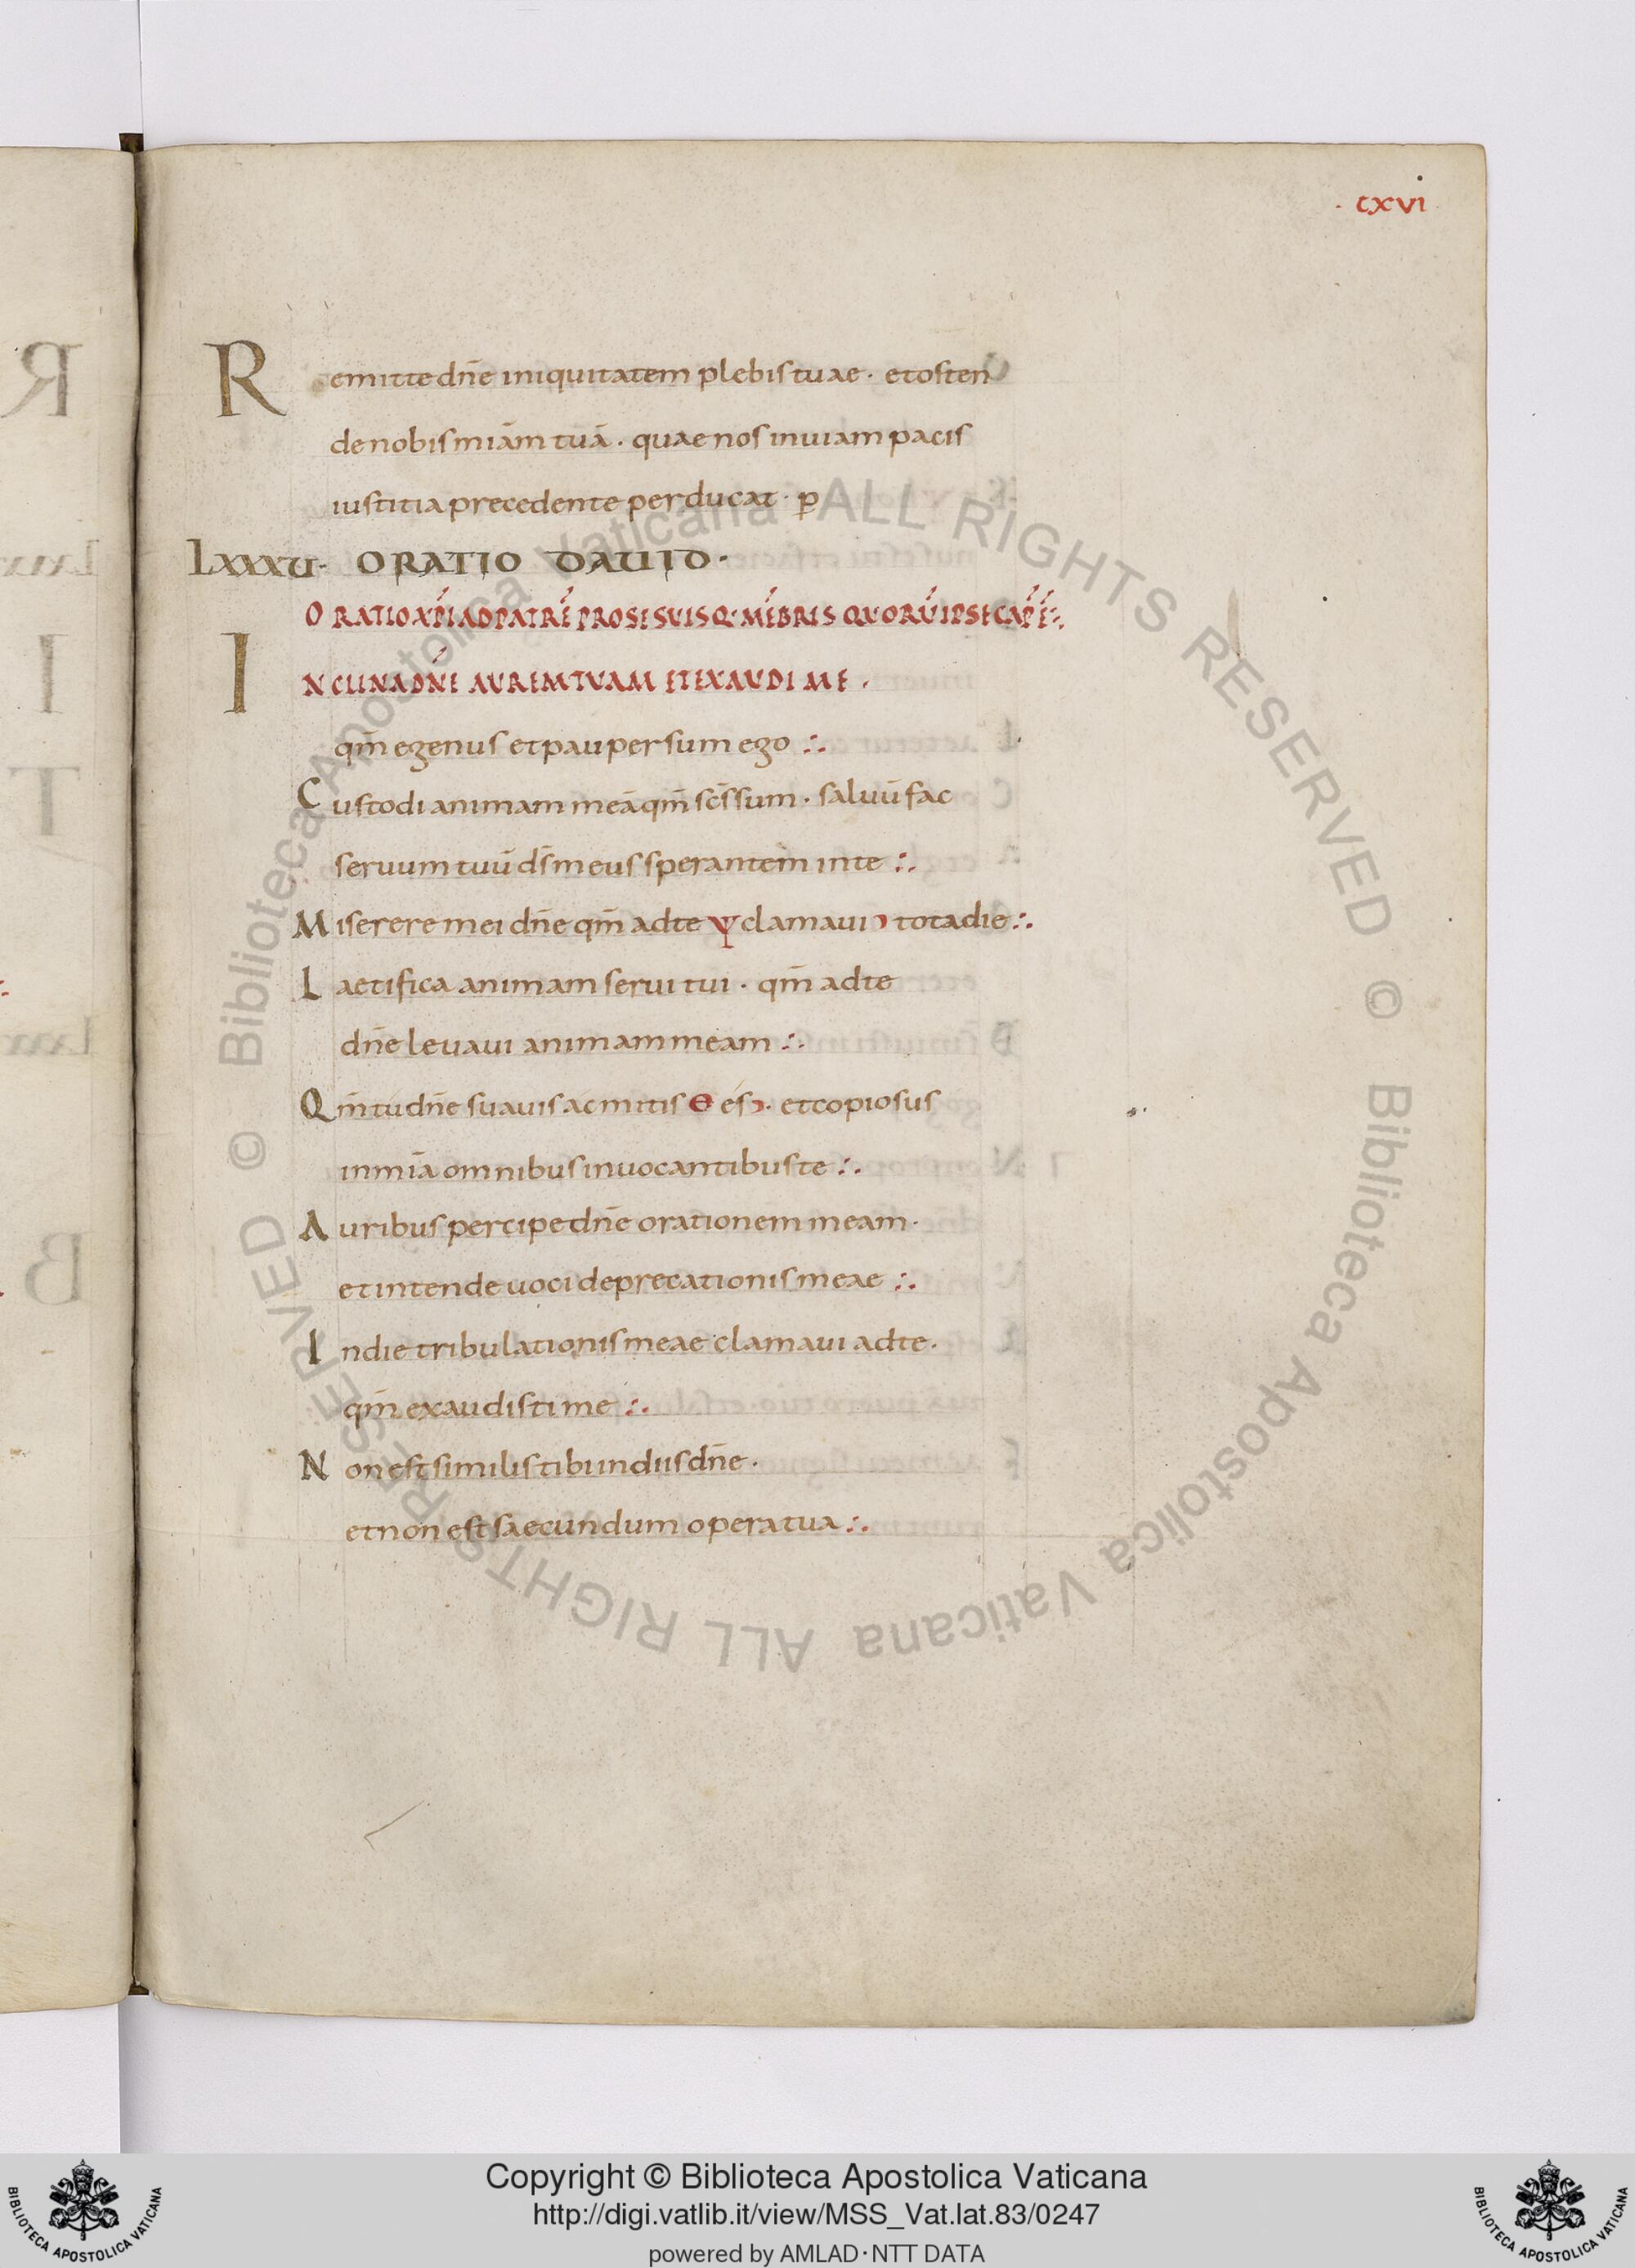 · cxvi
Remitte dn̄e iniquitatem plebis tuae · et osten
de nobis miām tuā · quae nos in uiam pacis
iustitia precedente perducat · p̄
Lxxxu· ORATIO DAUID·
ORATIO XP̄I AD PATRĒ PRO SE SVISQ· MĒBRIS QVORV̄ IPSE CAP̄ Ē:·
INCLINA DN̄E AVREM TVAM ET EXAVDI ME ·
qm̄ egenus et pauper sum ego :·
Custodi animam meā qm̄ sc̄s sum · saluū fac
seruum tuū ds̄ meus sperantem in te :·
Miserere mei dn̄e qm̄ ad te ѱ clamaui › tota die :·
Laetifica animam serui tui · qm̄ ad te
dn̄e leuaui animam meam :·
Qm̄ tu dn̄e suauis ac mitis ϴ es ›· et copiosus
in miā omnibus inuocantibus te :·
Auribus percipe dn̄e orationem meam ·
et intende uoci deprecationis meae :·
In die tribulationis meae clamaui ad te ·
qm̄ exaudisti me :·
Non est similis tibi in diis dn̄e ·
et non est saecundum opera tua :·
Biblioteca Apostolica Vaticana ALL RIGHTS RESERVED © Biblioteca Apostolica Vaticana ALL RIGHTS RESERVED ©
Copyright © Biblioteca Apostolica Vaticana
http://digi.vatlib.it/view/MSS_Vat.lat.83/0247
powered by AMLAD·NTT DATA
BIBLIOTECA APOSTOLICA VATICANA
BIBLIOTECA APOSTOLICA VATICANA